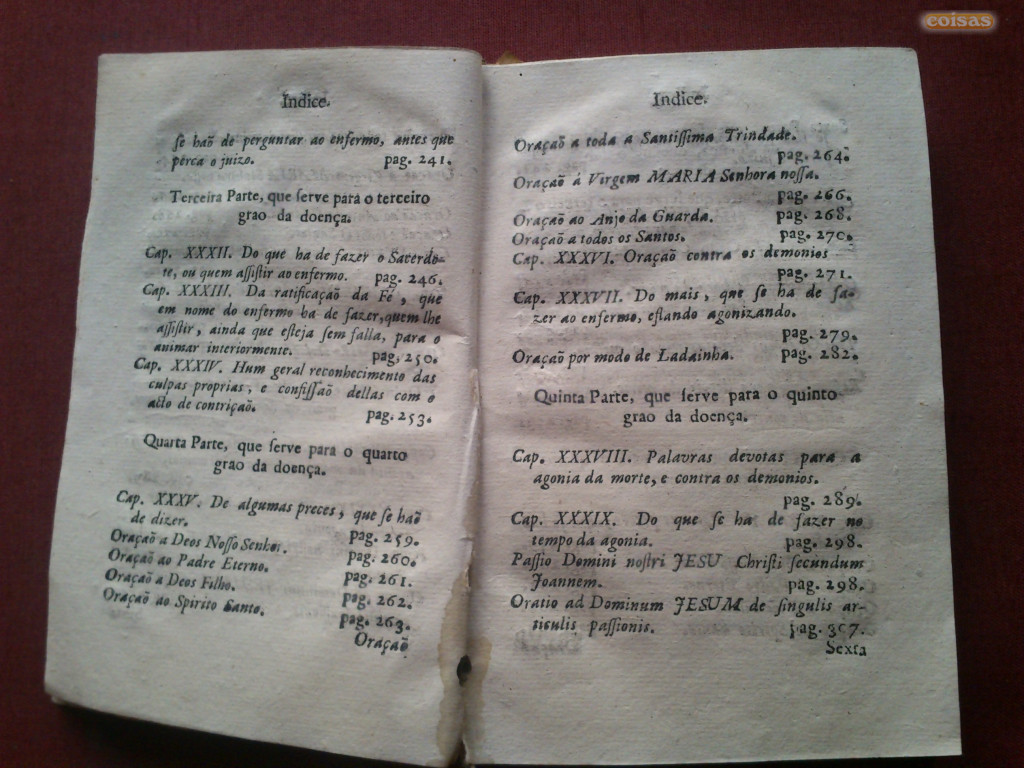 Indice.
ſe haõ de perguntar ao enfermo, antes que
perca o juizo. pag. 241.
Terceira Parte, que ſerve para o terceiro
grao da doença.
Cap. XXXII. Do que ha de fazer o Sacerdo-
te, ou quem aſſiſtir ao enfermo. pag. 246.
Cap. XXXIII. Da ratificaçaõ da Fé, que
em nome do enfermo ha de fazer, quem lhe
aſſiſtir, ainda que eſteja ſem falla, para o
animar interiormente. pag. 250.
Cap. XXXIV. Hum geral reconhecimento das
culpas proprias, e confiſſaõ dellas com o
acto de contriçaõ.
pag. 253.
Quarta Parte, que ſerve para o quarto
grao da doença.
Cap. XXXV. De algumas preces, que ſe haõ
de dizer. pag. 259.
Oraçaõ a Deos Noſſo Senhor. pag. 260.
Oraçaõ ao Padre Eterno. pag. 261.
Oraçaõ a Deos Filho. pag. 262.
Oraçaõ ao Spirito Santo. pag. 263.
Oraçaõ
Indice.
Oraçaõ a toda a Santiſſima Trindade.
pag. 264.
Oraçaõ á Virgem MARIA Senhora noſſa.
pag. 266.
Oraçaõ ao Anjo da Guarda. pag. 268.
Oraçaõ a todos os Santos. pag. 270.
Cap. XXXVI. Oraçaõ contra os demonios
pag. 271.
Cap. XXXVII. Do mais, que ſe ha de fa-
zer ao enfermo, eſtando agonizando.
pag. 279.
Oraçaõ por modo de Ladainha. pag. 282.
Quinta Parte, que ſerve para o quinto
grao da doença.
Cap. XXXVIII. Palavras devotas para a
agonia da morte, e contra os demonios.
pag. 289.
Cap. XXXIX. Do que ſe ha de fazer no
tempo da agonia. pag. 298.
Paſſio Domini noſtri JESU Chriſti ſecundum
Joannem. pag. 298.
Oratio ad Dominum JESUM de ſingulis ar-
ticulis paſſionis. pag. 307.
Sexta
coisas